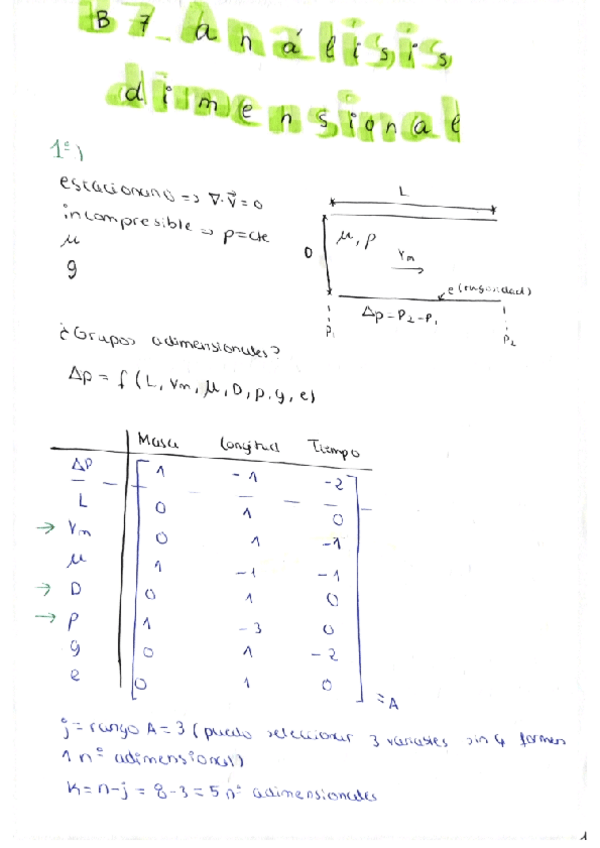 B7. Análisis
dimensional
1º)
estacionario => ∇·v⃗ = 0
incompresible => ρ=cte
μ
g
L
D
μ, ρ
Vm
e (rugosidad)
Δp = P2 - P1
P1
P2
¿Grupos adimensionales?
Δp = f (L, Vm, μ, D, ρ, g, e)
Masa Longitud Tiempo
ΔP 1 -1 -2
L 0 1 0
→ Vm 0 1 -1
μ 1 -1 -1
→ D 0 1 0
→ ρ 1 -3 0
g 0 1 -2
e 0 1 0
= A
j = rango A = 3 (puedo seleccionar 3 variables sin q formen
1 nº adimensional)
K = n-j = 8-3 = 5 nº adimensionales
1